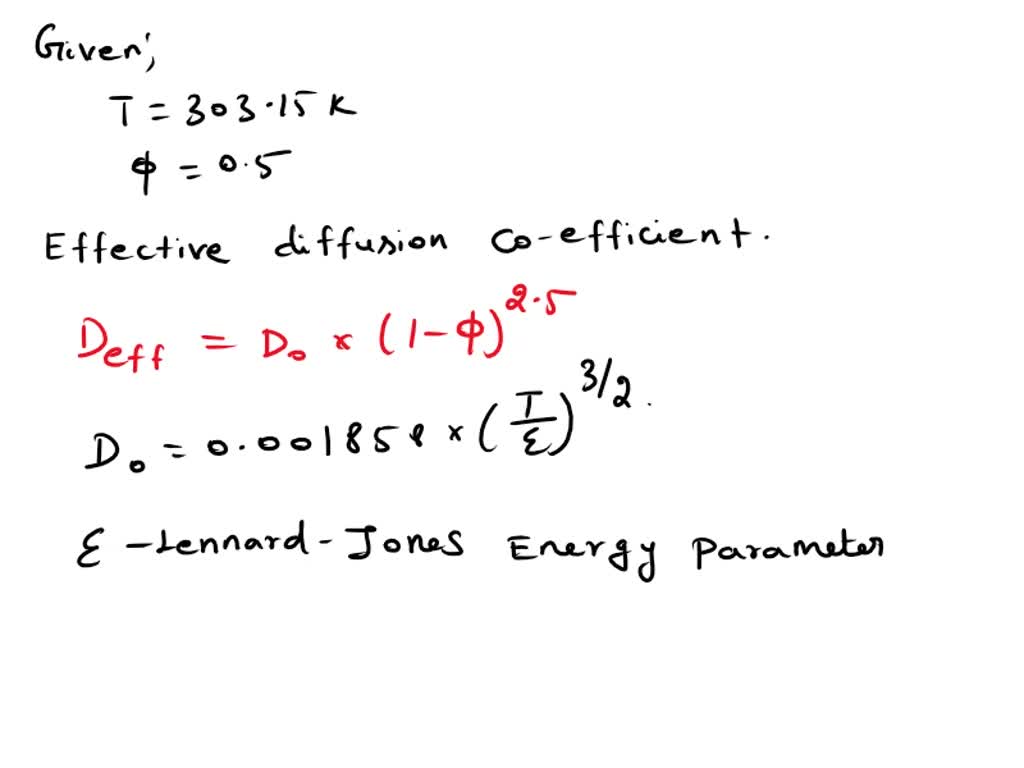 Given;
T = 303.15 K
φ = 0.5
Effective diffusion co-efficient.
Deff = D₀ × (1-φ)^2.5
D₀ = 0.001858 × (T/ε)^3/2.
ε - Lennard-Jones Energy Parameter